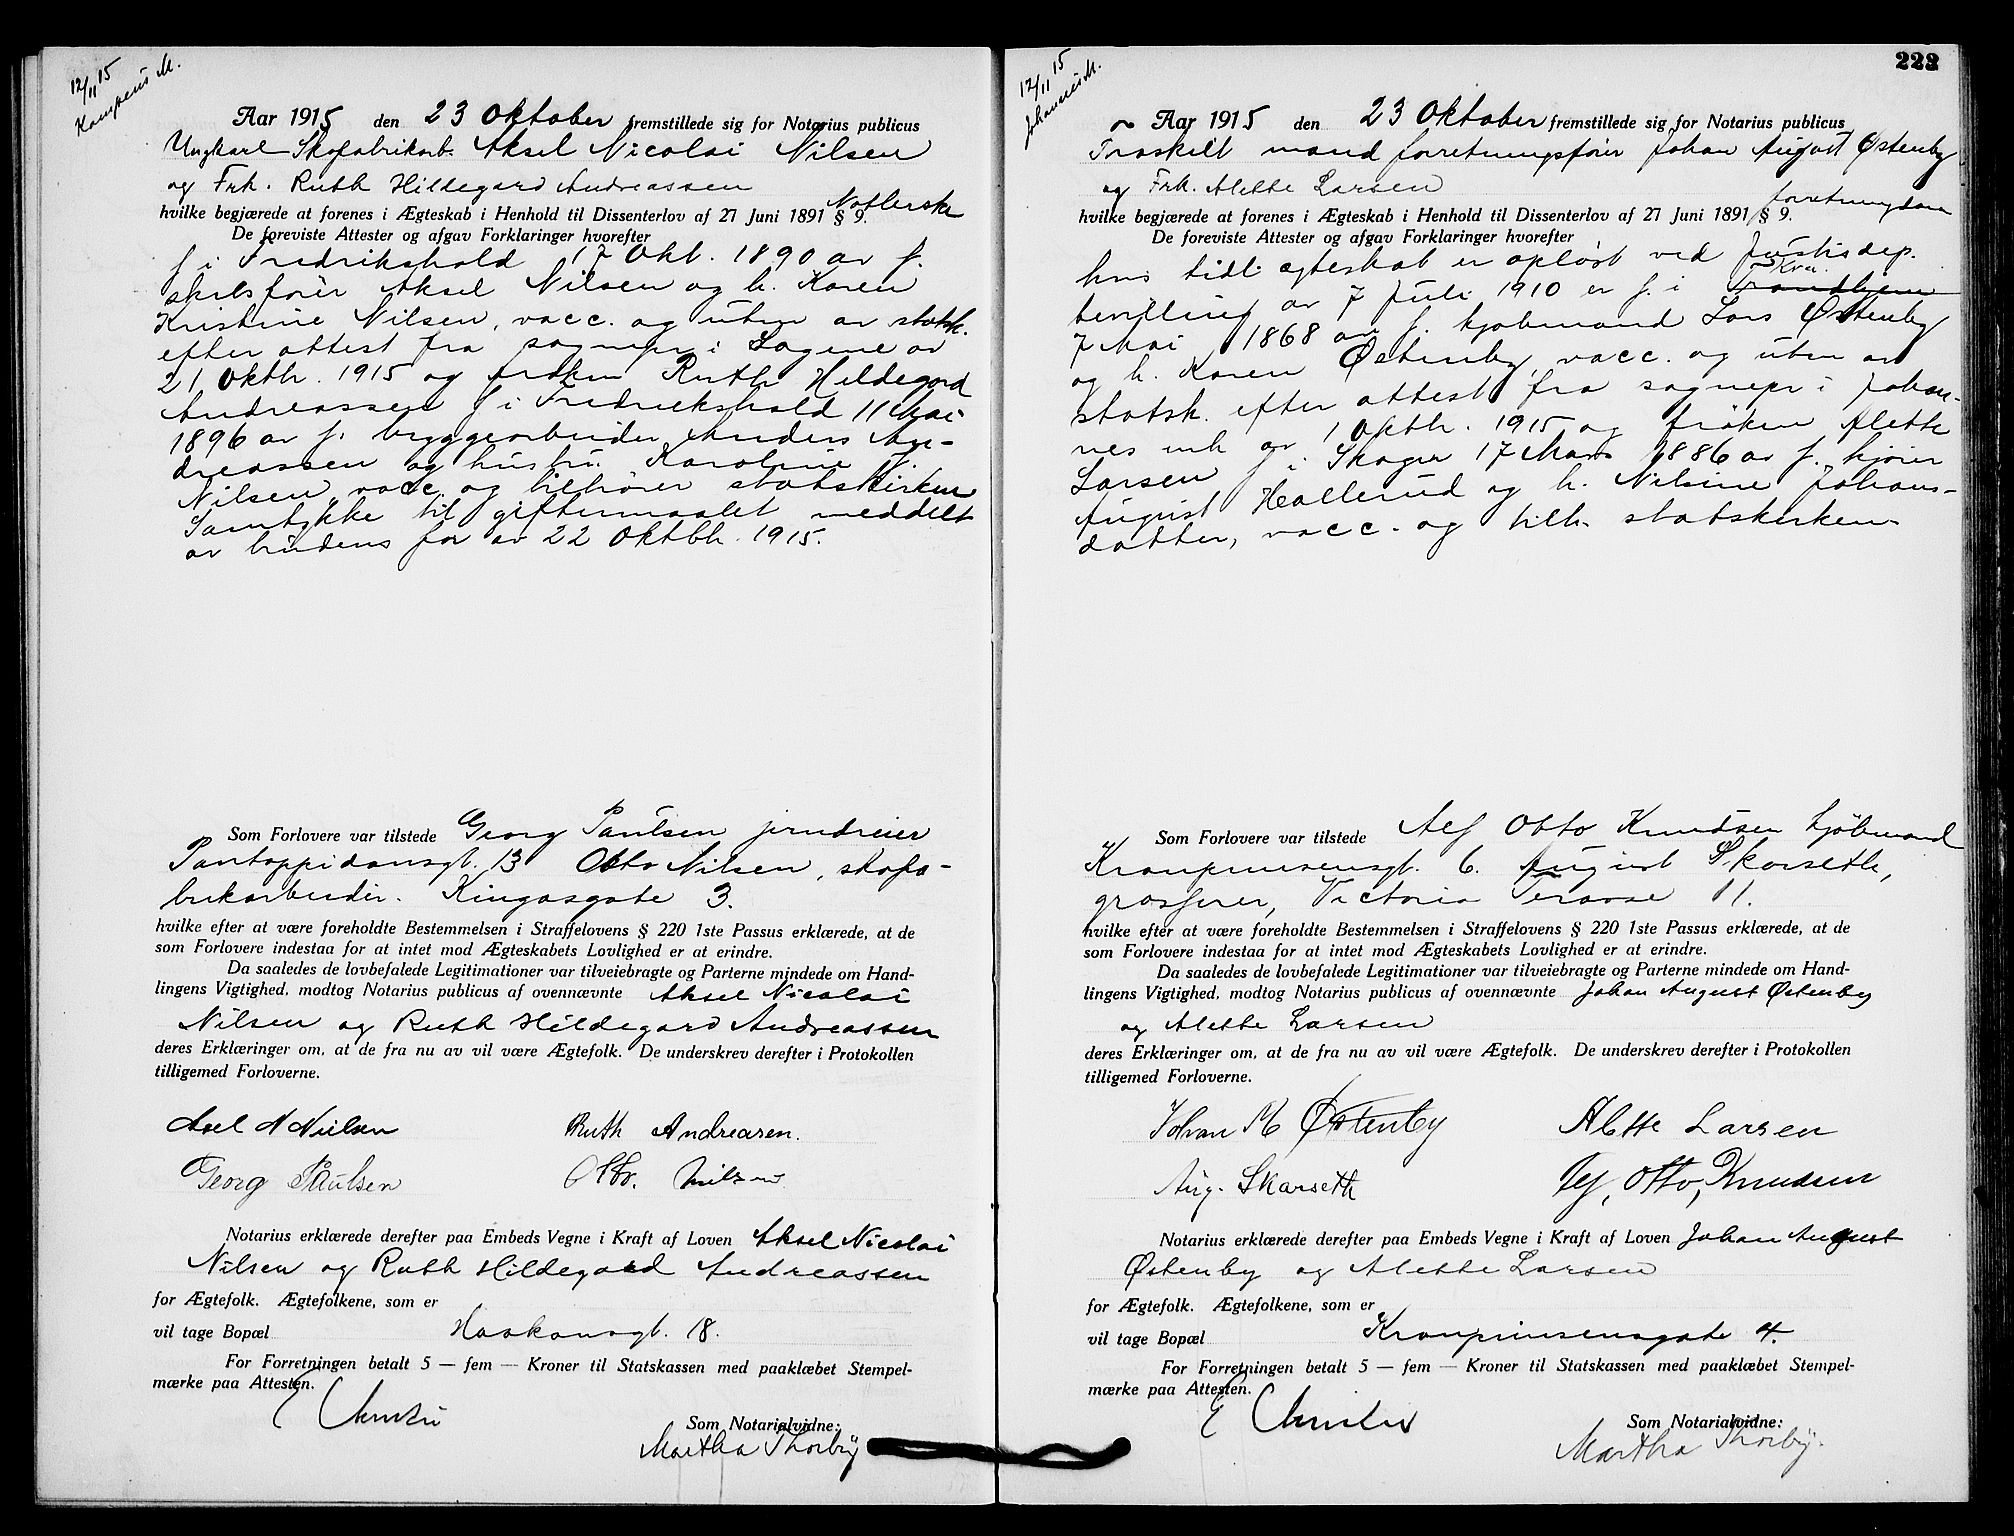 12/11 15
Kampens M.
Aar 1915 den 23 Oktober fremstillede sig for Notarius publicus
Ungkarl Skofabrikarb. Aksel Nicolai Nilsen
og Frk. Ruth Hildegard Andreassen
hvilke begjærede at forenes i Ægteskab i Henhold til Dissenterlov af 27 Juni 1891 § 9.
De foreviste Attester og afgav Forklaringer hvorefter
f i Fredrikshald 17 Okt. 1890 av f.
skibsfører Aksel Nilsen og h. Karen
Kristine Nilsen, vacc. og uten av statsk.
efter attest fra sognepr i Sagene av
21 Oktbr. 1915 og frøken Ruth Hildegard
Andreassen f i Fredrikshald 11 Mai
1896 av f. byggearbeider Anders An-
dreassen og hustru Karoline
Nilsen vacc. og tilhører statskirken
Samtykke til giftermaalet meddelt
av brudens far av 22 Oktbr. 1915.
Som Forlovere var tilstede Georg Paulsen jerndreier
Pantoppidansgt. 13 Otto Nilsen, skofa-
brikarbeider. Kingosgate 3.
hvilke efter at være foreholdte Bestemmelsen i Straffelovens § 220 1ste Passus erklærede, at de
som Forlovere indestaa for at intet mod Ægteskabets Lovlighed er at erindre.
Da saaledes de lovbefalede Legitimationer var tilveiebragte og Parterne mindede om Hand-
lingens Vigtighed, modtog Notarius publicus af ovennævnte Aksel Nicolai
Nilsen og Ruth Hildegard Andreassen
deres Erklæringer om, at de fra nu av vil være Ægtefolk. De underskrev derefter i Protokollen
tilligemed Forloverne.
Axel N Nielsen Ruth Andreasen.
Georg Paulsen Otto. Nilsen
Notarius erklærede derefter paa Embeds Vegne i Kraft af Loven Aksel Nicolai
Nilsen og Ruth Hildegard Andreassen
for Ægtefolk. Ægtefolkene, som er
vil tage Bopæl Haakonsgt. 18.
For Forretningen betalt 5 — fem — Kroner til Statskassen med paaklæbet Stempel-
mærke paa Attesten.
E Christie
Som Notarialvidne:
Martha Thorby
222
12/11 15
Johannes M.
Aar 1915 den 23 Oktober fremstillede sig for Notarius publicus
Fraskilt mand forretningsfører Johan August Østenby
og Frk. Alette Larsen forretningsdame
hvilke begjærede at forenes i Ægteskab i Henhold til Dissenterlov af 27 Juni 1891 § 9.
De foreviste Attester og afgav Forklaringer hvorefter
hvis tidl. egteskab er opløst ved Justisdep.
bevilling av 7 Juli 1910 er f. i Trondhjem Kra.
7 Mai 1868 av f. kjøbmand Lars Østenby
og h. Karen Østenby, vacc. og uten av
statsk. efter attest fra sognepr i Johan-
nes mh av 1 Oktbr. 1915 og frøken Alette
Larsen f i Skoger 17 Mars 1886 av f. kjører
August Hallerud og h. Nilsine Johans-
datter, vacc. og tilh. statskirken.
Som Forlovere var tilstede Alf Otto Knudsen kjøbmand
Kronprinsensgt. 6. August Skarseth,
grosserer, Victoria Terasse 11.
hvilke efter at være foreholdte Bestemmelsen i Straffelovens § 220 1ste Passus erklærede, at de
som Forlovere indestaa for at intet mod Ægteskabets Lovlighed er at erindre.
Da saaledes de lovbefalede Legitimationer var tilveiebragte og Parterne mindede om Hand-
lingens Vigtighed, modtog Notarius publicus af ovennævnte Johan August Østenby
og Alette Larsen
deres Erklæringer om, at de fra nu av vil være Ægtefolk. De underskrev derefter i Protokollen
tilligemed Forloverne.
Johan A Østenby Alette Larsen
Aug. Skarseth Alf, Otto, Knudsen
Notarius erklærede derefter paa Embeds Vegne i Kraft af Loven Johan August
Østenby og Alette Larsen
for Ægtefolk. Ægtefolkene, som er
vil tage Bopæl Kronprinsensgate 4.
For Forretningen betalt 5 — fem — Kroner til Statskassen med paaklæbet Stempel-
mærke paa Attesten.
E Christie
Som Notarialvidne:
Martha Thorby.